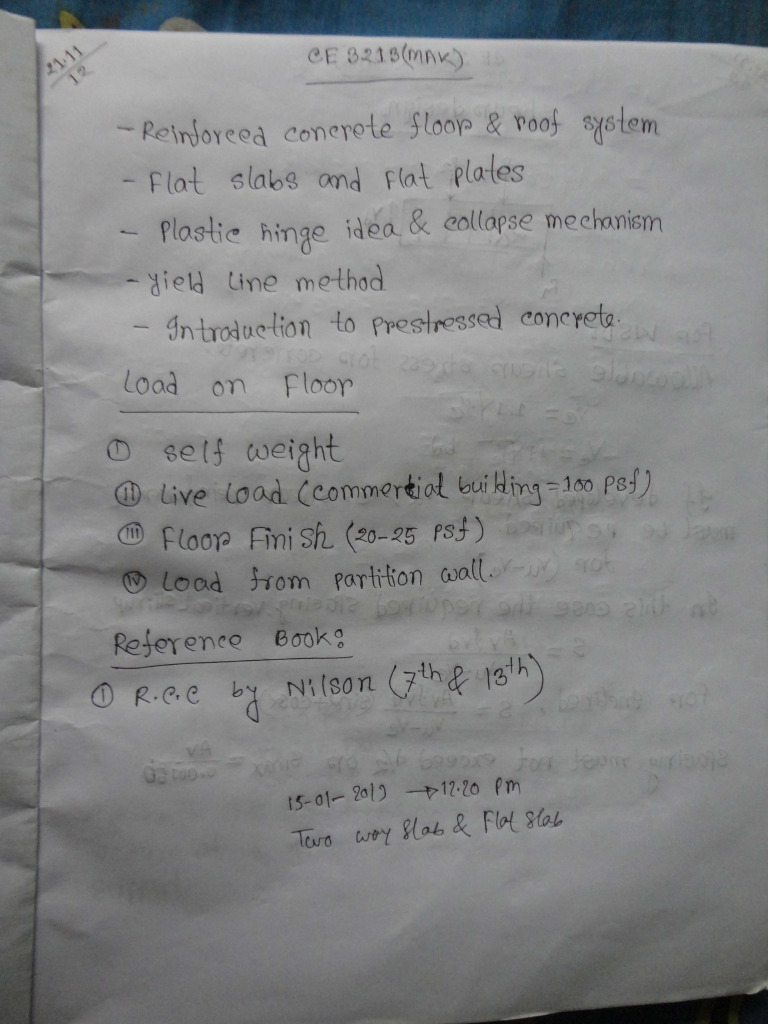 21.11
12
CE 3213(MAK)
- Reinforced concrete floor & roof system
- Flat slabs and Flat plates
- Plastic hinge idea & collapse mechanism
- Yield Line method
- Introduction to Prestressed concrete.
Load on Floor
(I) self weight
(II) Live Load (commercial building = 100 psf)
(III) Floor Finish (20-25 psf)
(IV) Load from partition wall.
Reference Book:
(I) R.C.C by Nilson (7th & 13th)
15-01- 2013 → 12.20 pm
Two way slab & Flat slab